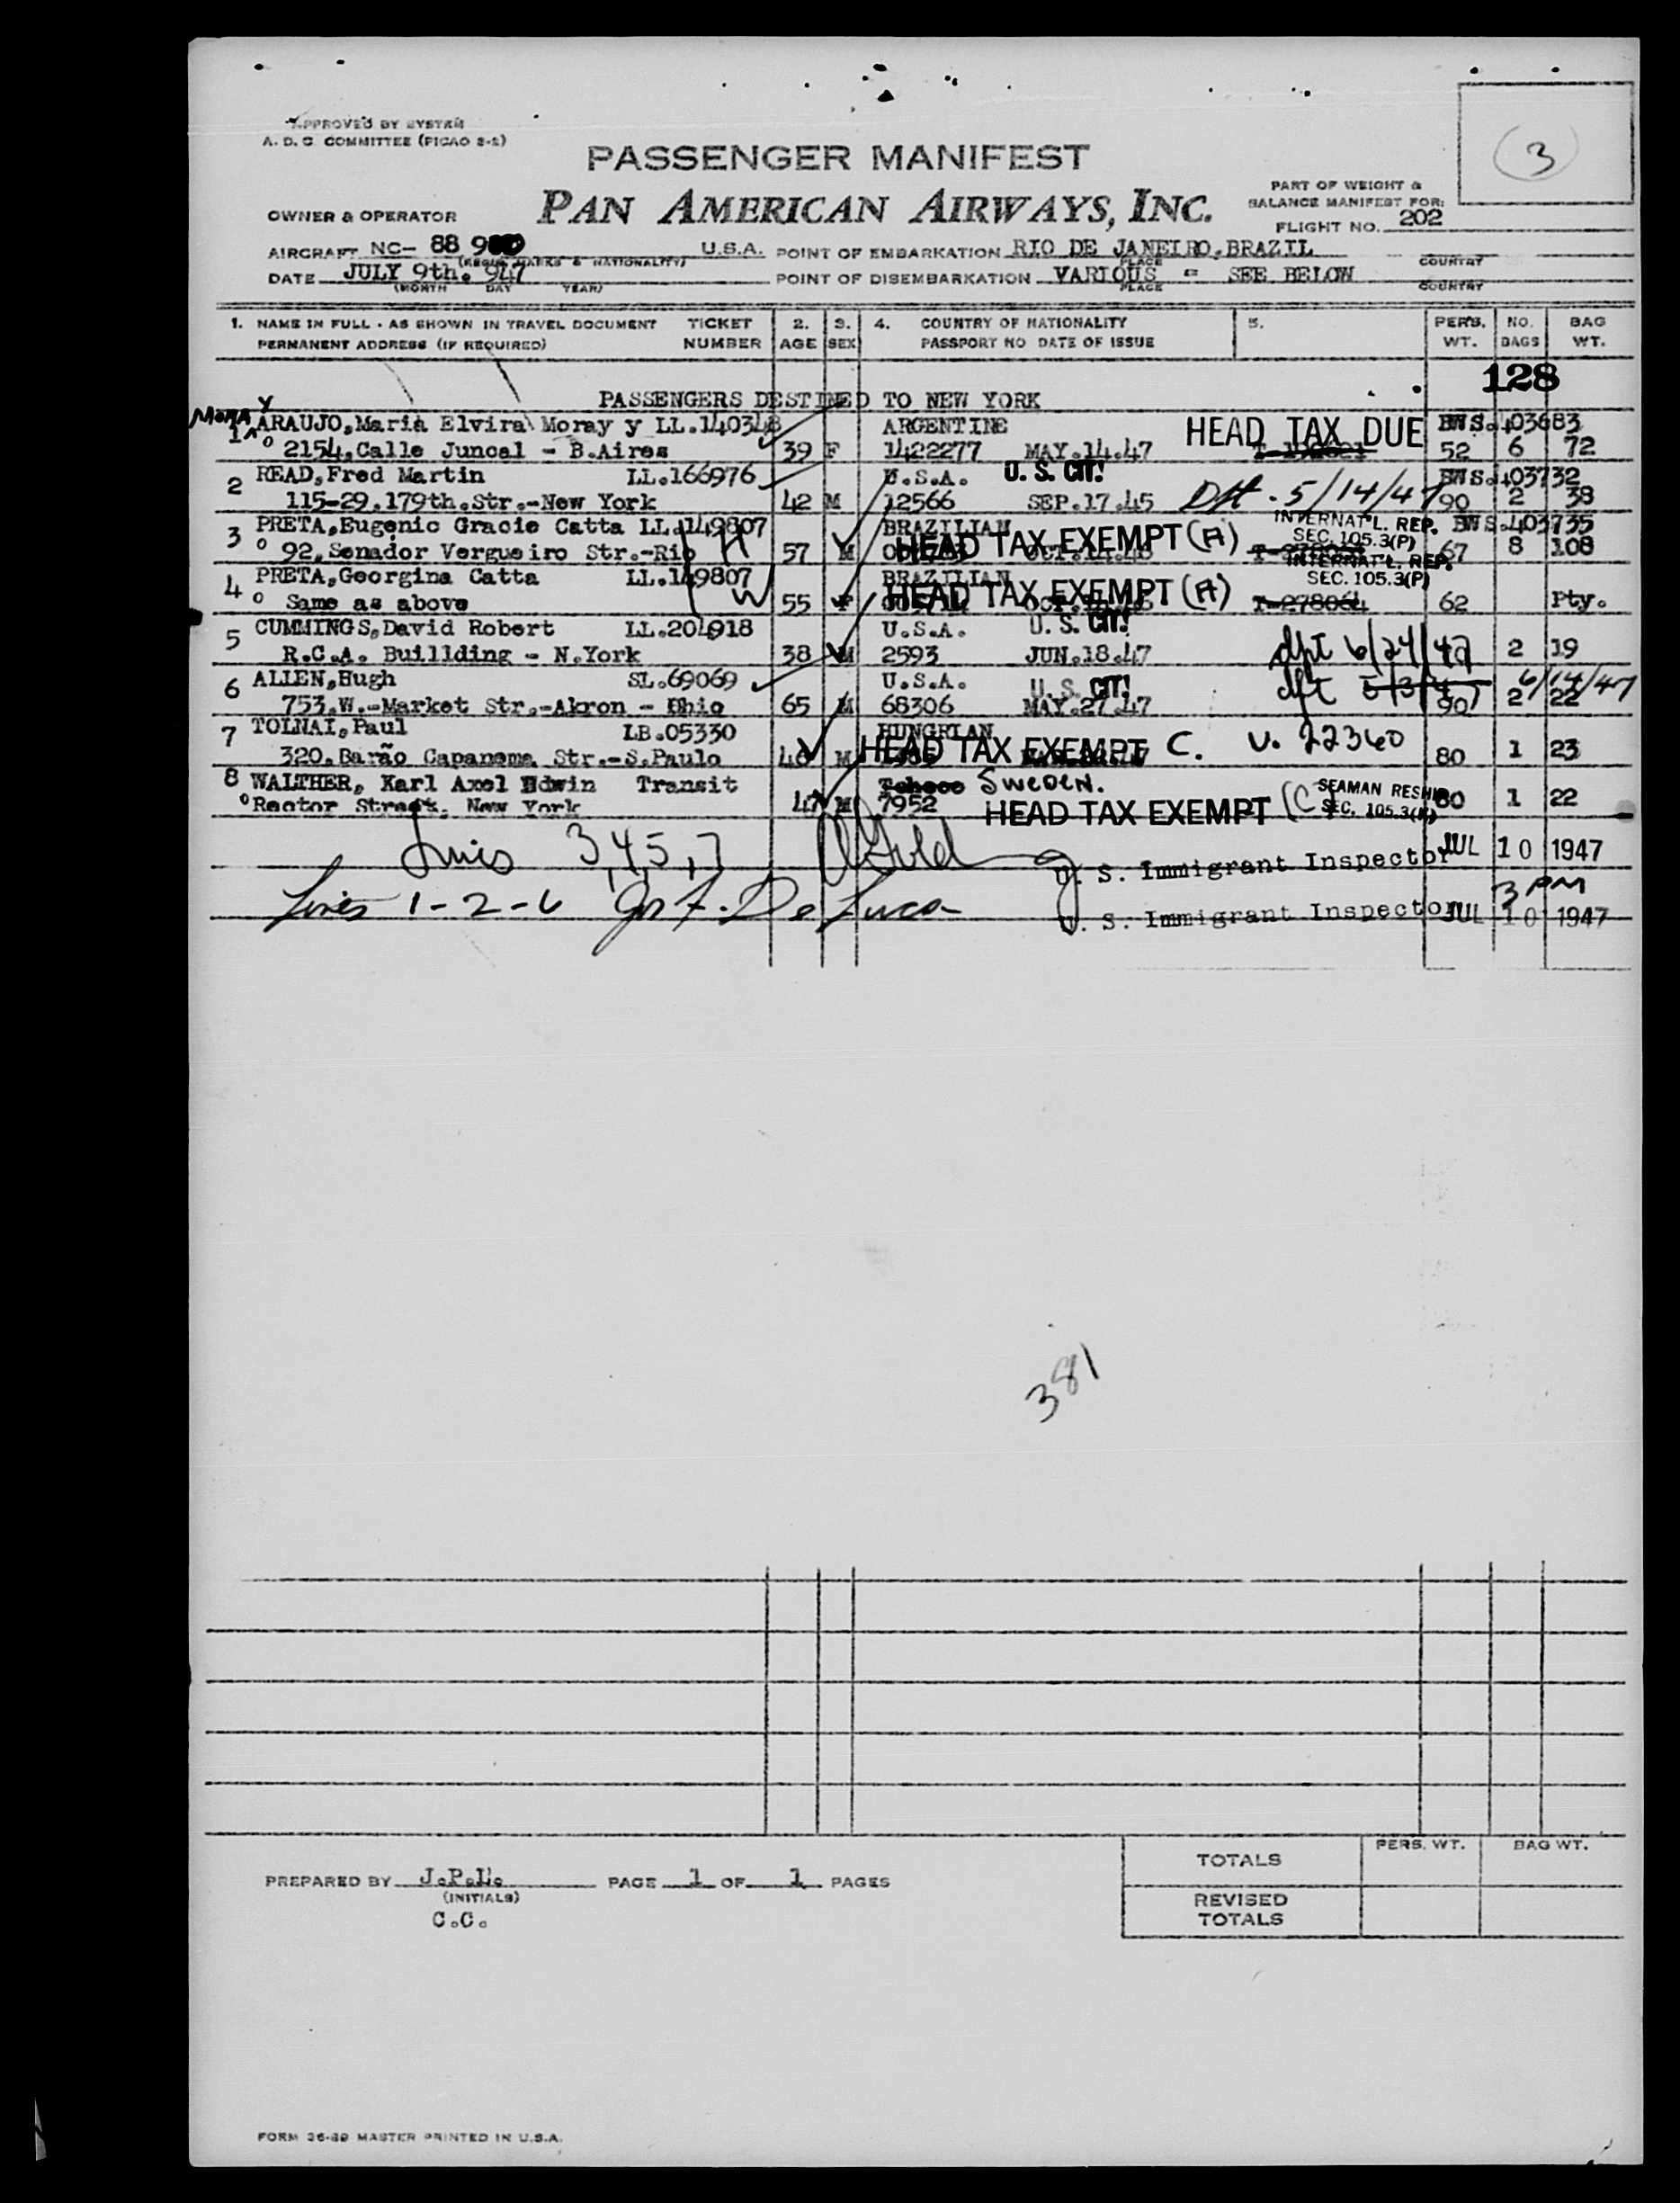 APPROVED BY SYSTEM
A. D. C. COMMITTEE (PICAO 2-2)
3
PASSENGER MANIFEST
PAN AMERICAN AIRWAYS, INC.
PART OF WEIGHT &
BALANCE MANIFEST FOR:
FLIGHT NO. 202
OWNER & OPERATOR
AIRCRAFT NC- 88 9 U.S.A. POINT OF EMBARKATION RIO DE JANEIRO, BRAZIL
(REGIS. MARKS & NATIONALITY) PLACE COUNTRY
DATE JULY 9th. 947 POINT OF DISEMBARKATION VARIOUS = SEE BELOW
(MONTH DAY YEAR) PLACE COUNTRY
1. NAME IN FULL - AS SHOWN IN TRAVEL DOCUMENT TICKET 2. 3. 4. COUNTRY OF NATIONALITY 5. PERS. NO. BAG
PERMANENT ADDRESS (IF REQUIRED) NUMBER AGE SEX PASSPORT NO DATE OF ISSUE WT. BAGS WT.
128
PASSENGERS DESTINED TO NEW YORK
1 ARAUJO, Maria Elvira Moray y LL.140348 ARGENTINE HEAD TAX DUE BWS.403683
2154, Calle Juncal - B.Aires 39 F 1422277 MAY.14.47 52 6 72
2 READ, Fred Martin LL.166976 U.S.A. U. S. CIT! BWS.403732
115-29.179th.Str.-New York 42 M 12566 SEP.17.45 5/14/47 90 2 38
3 PRETA, Eugenio Gracie Catta LL.149807 H BRAZILIAN HEAD TAX EXEMPT (A) INTERNAT'L. REP. SEC. 105.3(P) BWS.403735
92, Senador Vergueiro Str.-Rio 57 M 67 8 108
4 PRETA, Georgina Catta LL.149807 W BRAZILIAN HEAD TAX EXEMPT (A) INTERNAT'L. REP. SEC. 105.3(P)
Same as above 55 F T-278064 62 Pty.
5 CUMMINGS, David Robert LL.204918 U.S.A. U. S. CIT!
R.C.A. Buillding - N.York 38 M 2593 JUN.18.47 dpt 6/24/47 2 19
6 ALLEN, Hugh SL.69069 U.S.A. U. S. CIT! dpt 6/14/47
753.W.-Market Str.-Akron - Ohio 65 M 68306 MAY.27.47 90 2 22
7 TOLNAI, Paul LB.05330 HUNGRIAN HEAD TAX EXEMPT C. V. 22360
320. Barão Capanema Str.-S.Paulo 46 M 80 1 23
8 WALTHER, Karl Axel Edwin Transit Sweden.
Rector Street, New York 47 M 7952 HEAD TAX EXEMPT (C) SEAMAN RESHIP SEC. 105.3(N) 80 1 22
Lines 3,4,5,7 U. S. Immigrant Inspector JUL 10 1947
3 PM
Lines 1-2-6 Jos F. De Luca U. S. Immigrant Inspector JUL 10 1947
381
TOTALS PERS. WT. BAG WT.
REVISED
TOTALS
PREPARED BY PAGE 1 OF 1 PAGES
(INITIALS)
C.C.
FORM 36-80 MASTER PRINTED IN U.S.A.